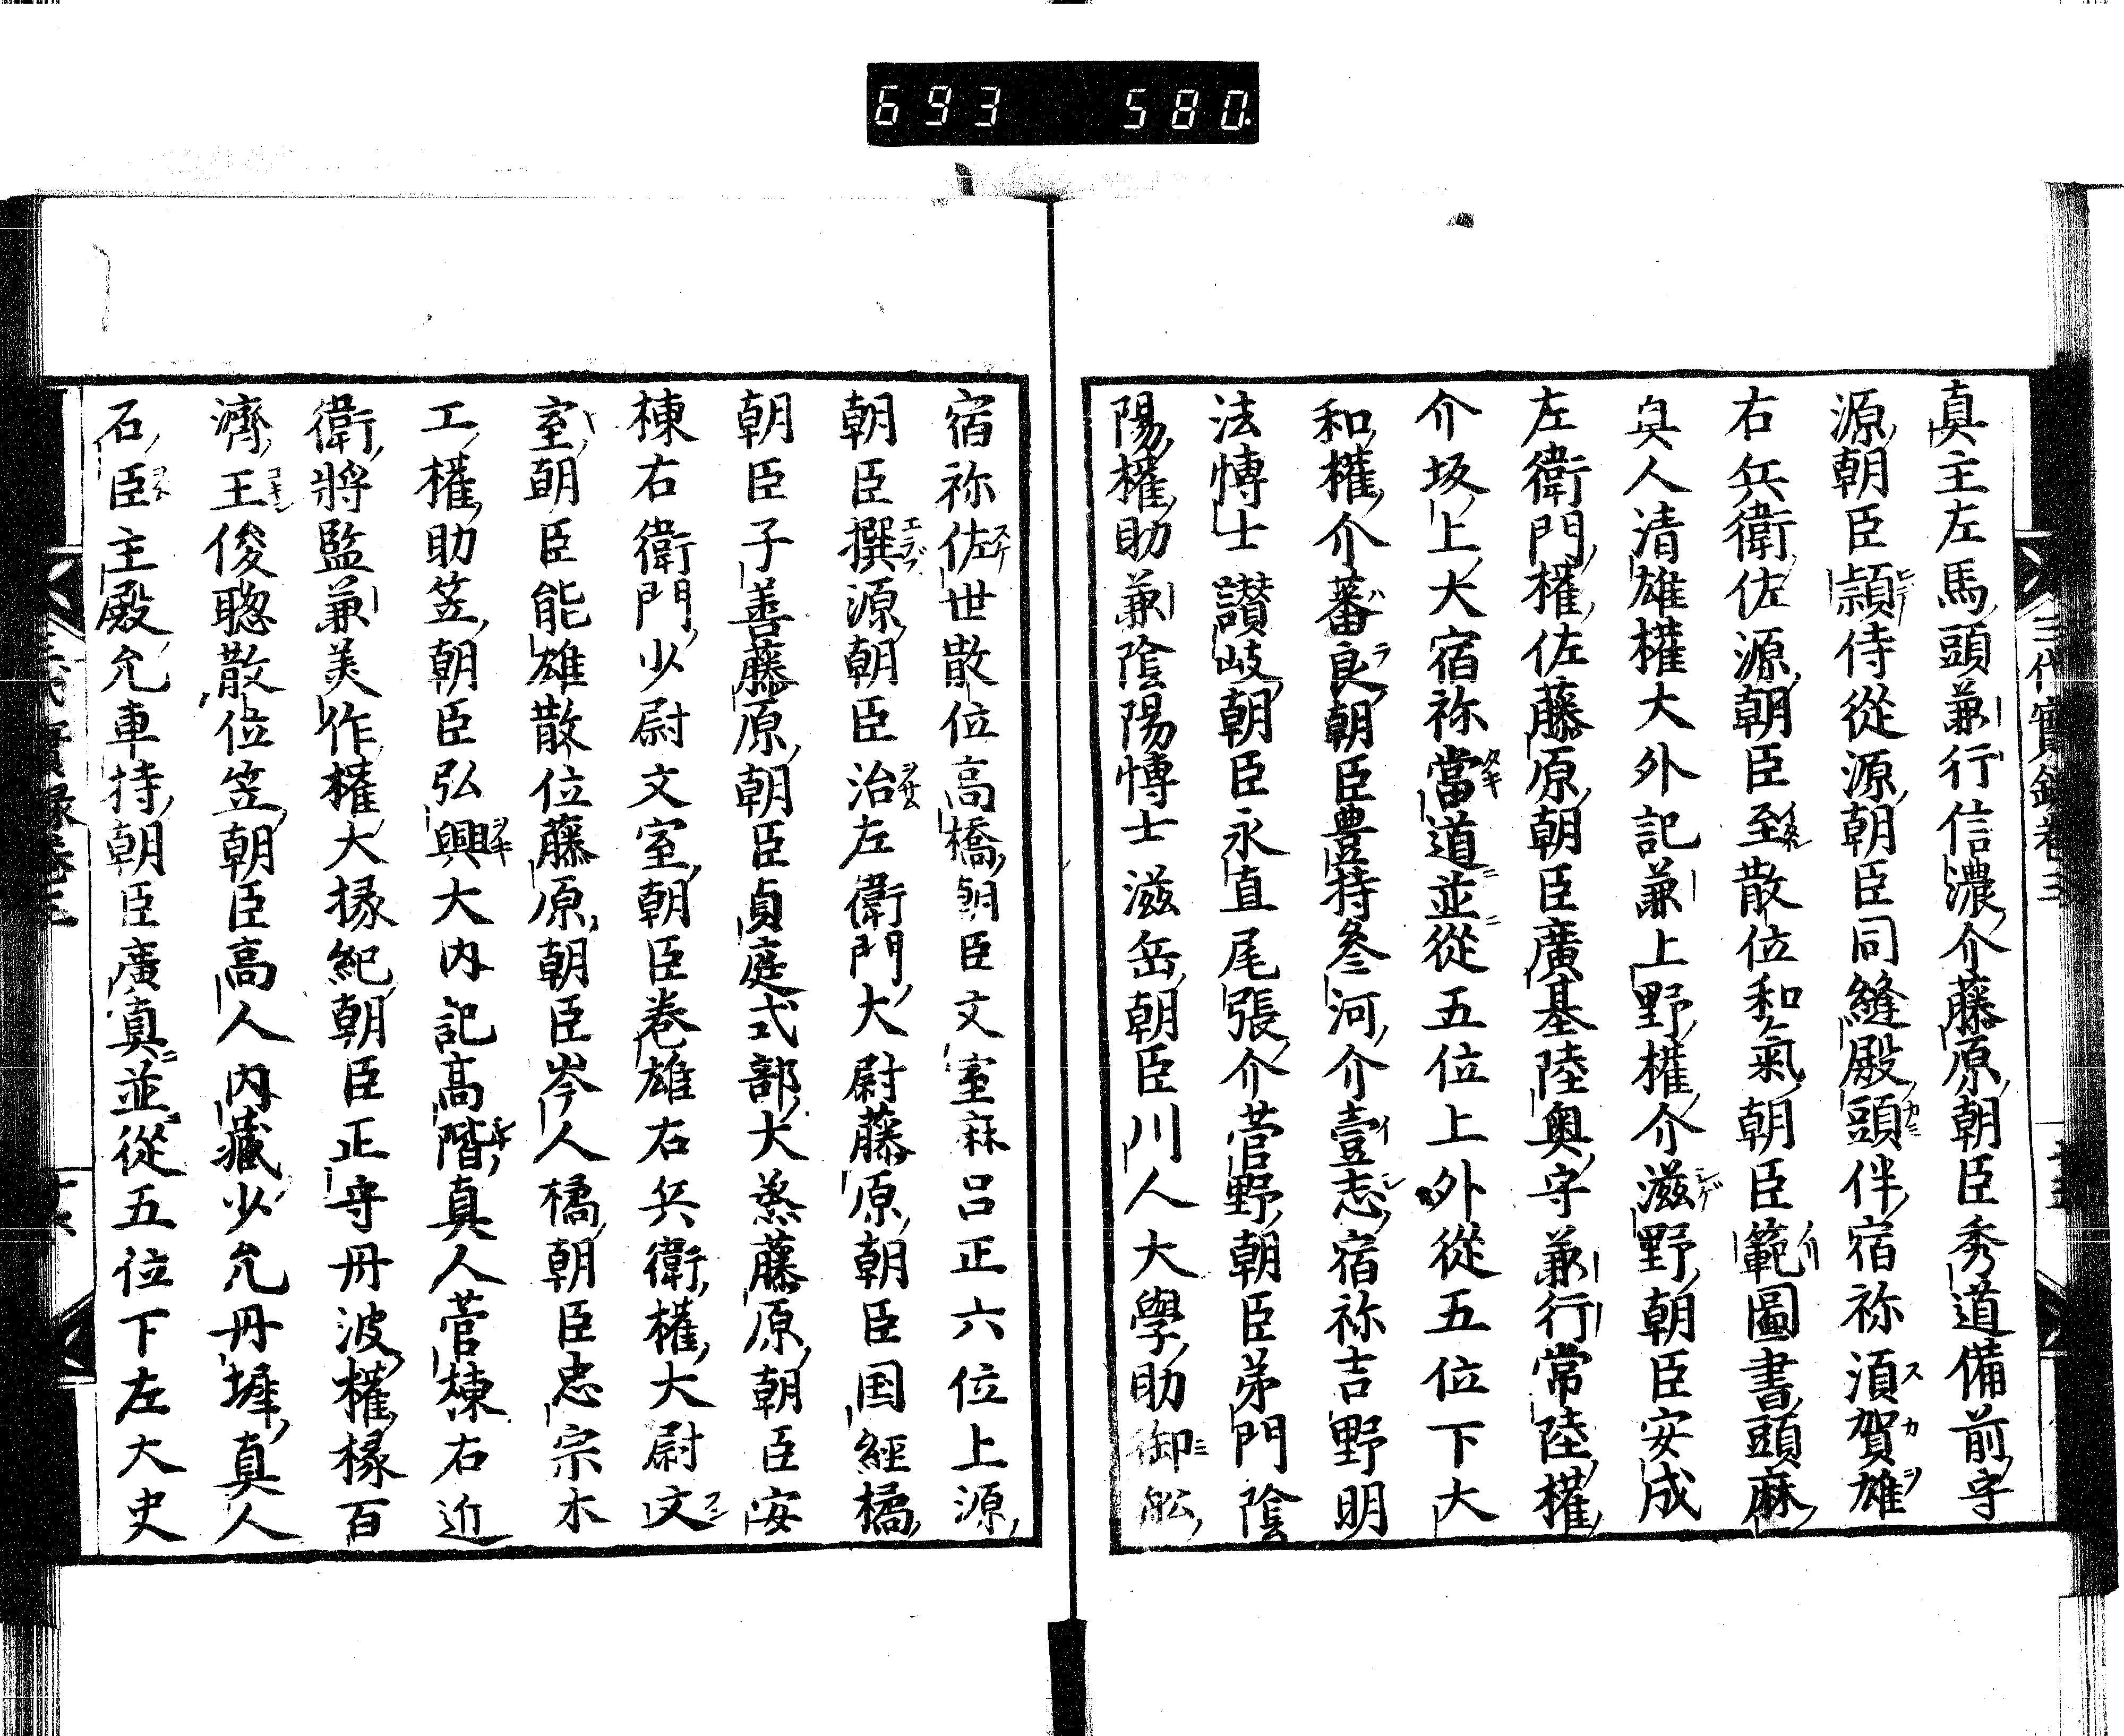 693 580.
三代實録卷三
真主左馬頭兼行信濃介藤原朝臣秀道備前守
源朝臣頴侍從源朝臣同縫殿頭伴宿祢湏賀雄
右兵衛佐源朝臣至散位和氣朝臣範圖書頭麻
真人清雄權大外記兼上野權介滋野朝臣安成
左衛門權佐藤原朝臣廣基陸奥守兼行常陸權
介坂上大宿祢當道並從五位上外從五位下大
和權介蕃良朝臣豊持叅河介壹志宿祢吉野明
法愽士讃岐朝臣永直尾張介菅野朝臣弟門陰
陽權助兼陰陽愽士滋岳朝臣川人大學助御舩
宿祢佐世散位高橋朝臣文室麻呂正六位上源
朝臣撰源朝臣治左衛門大尉藤原朝臣国經橘
朝臣子善藤原朝臣貞庭式部大丞藤原朝臣安
棟右衛門少尉文室朝臣巻雄右兵衛權大尉文
室朝臣能雄散位藤原朝臣岑人橘朝臣忠宗木
工權助笠朝臣弘興大内記髙階真人菅棟右近
衛將監兼美作權大掾紀朝臣正守丹波權掾百
濟王俊聰散位笠朝臣高人内藏少允丹墀真人
石臣主殿允車持朝臣廣真並從五位下左大史
三代實録卷三